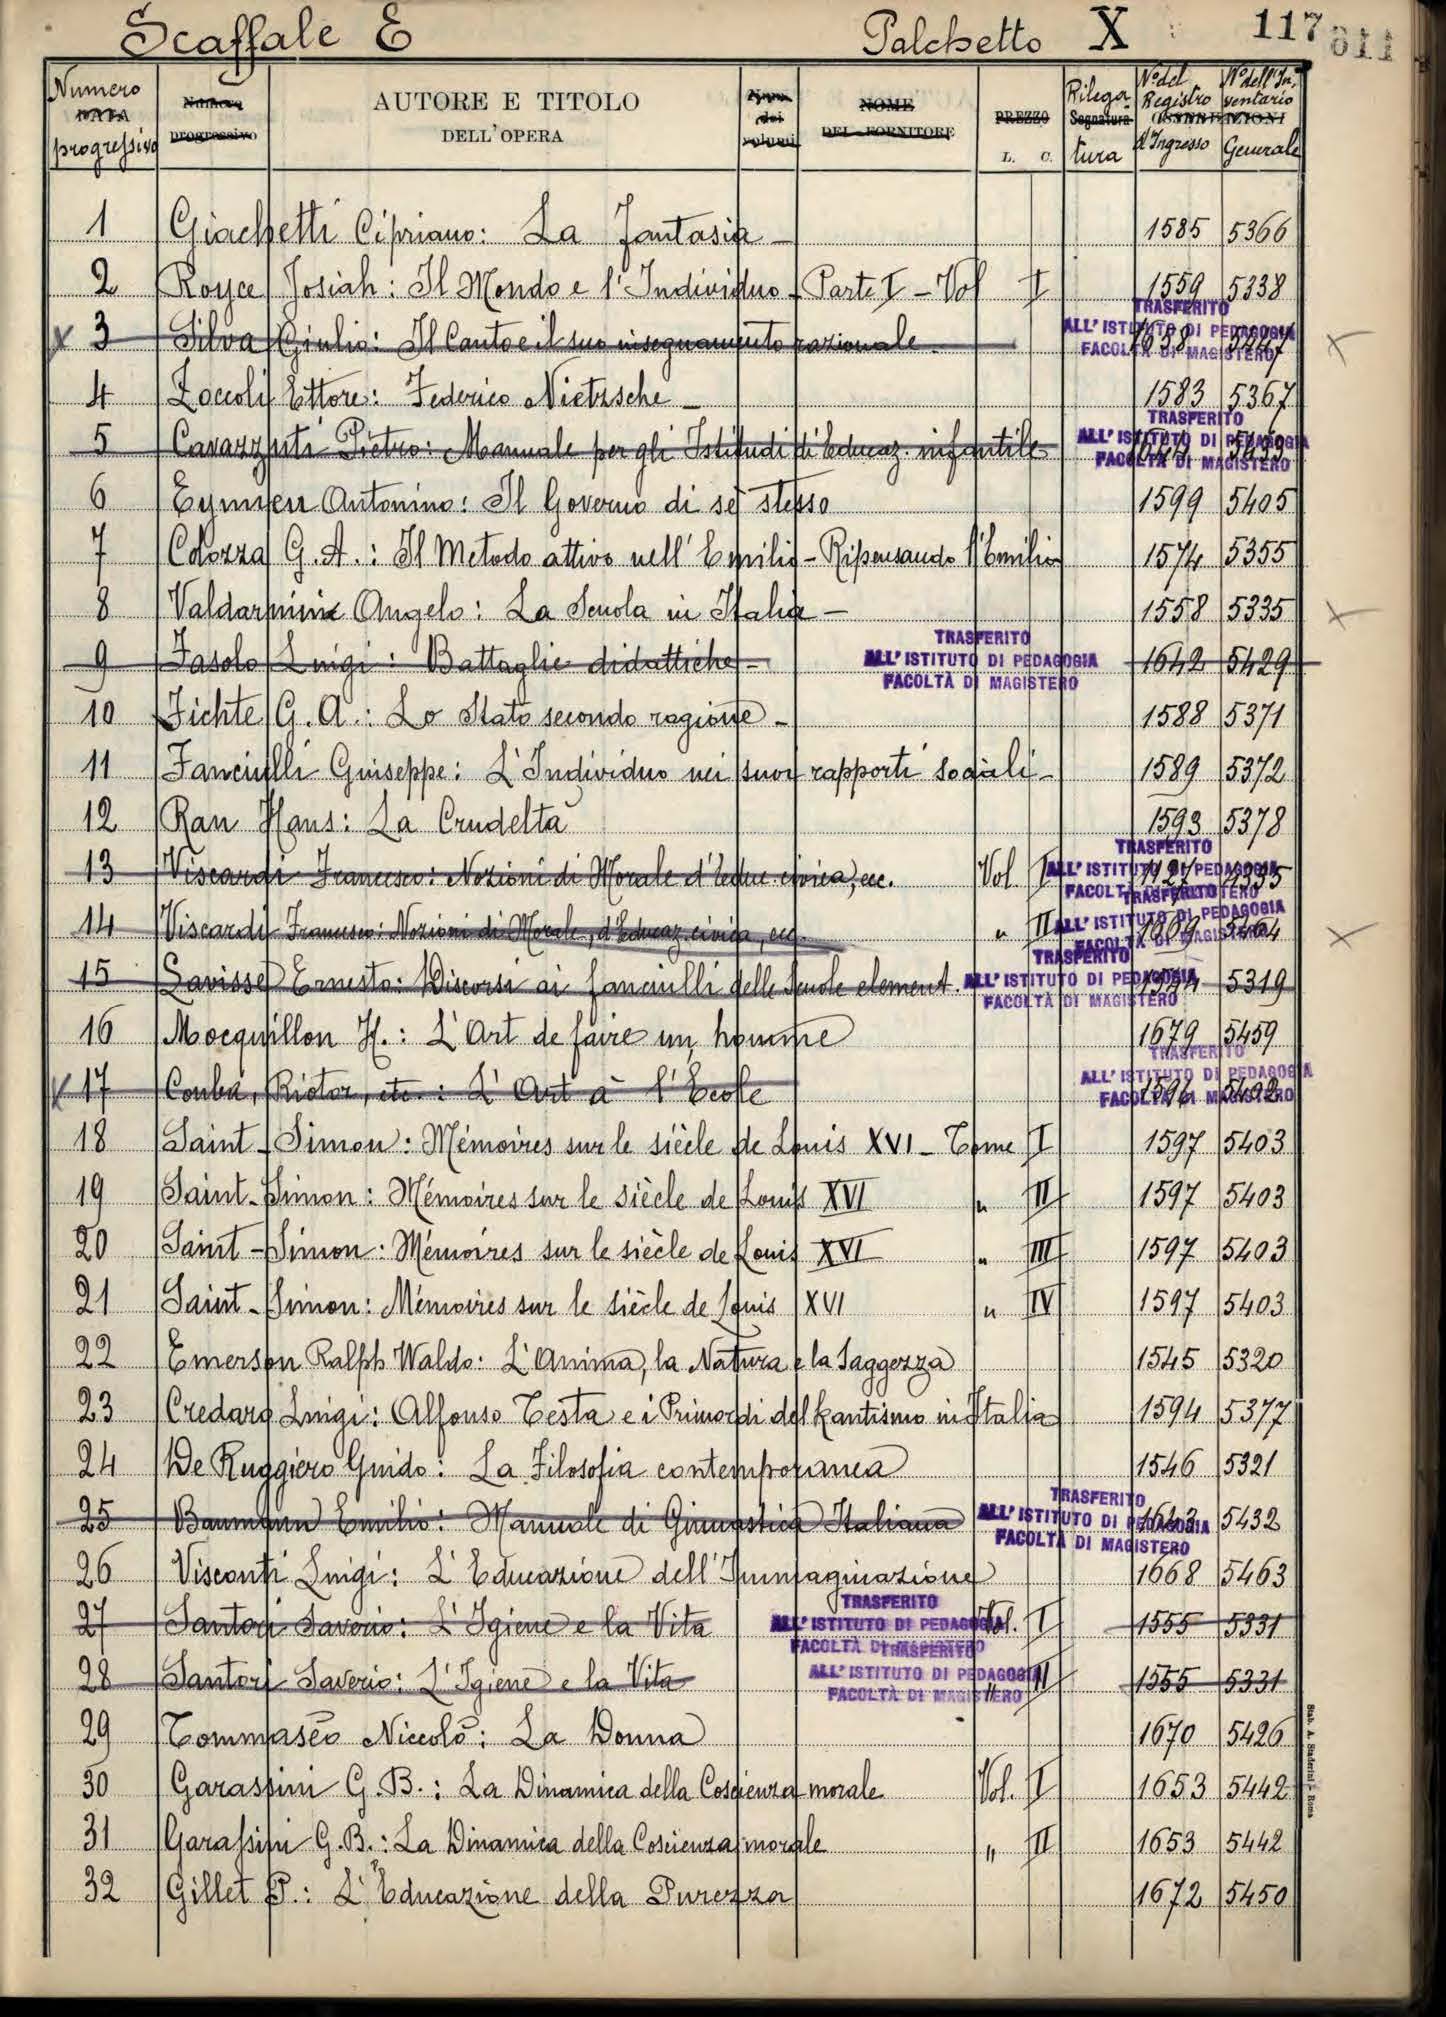 Scaffale E Palchetto X 117
Numero DATA progressivo Numero progressivo AUTORE E TITOLO DELL'OPERA Num. dei volumi NOME DEL FORNITORE PREZZO L. C. Rilega Segnatura tura N.o del Registro d'Ingresso N.o dell'Inventario OSSERVAZIONI Generale
1 Giachetti Cipriano: La fantasia - 1585 5366
2 Royce Josiah: Il Mondo e l'Individuo - Parte I - Vol I 1559 5338
TRASFERITO ALL'ISTITUTO DI PEDAGOGIA FACOLTÀ DI MAGISTERO
x 3 Silva Giulio: Il Canto e il suo insegnamento razionale. 1638 x
4 Zoccoli Ettore: Federico Nietzsche - 1583 5367
TRASFERITO ALL'ISTITUTO DI PEDAGOGIA FACOLTÀ DI MAGISTERO
5 Cavazzuti Pietro: Manuale per gli Istitudi di Educaz. infantile
6 Eymieu Antonino: Il Governo di sè stesso 1599 5405
7 Colozza G. A.: Il Metodo attivo nell'Emilio - Ripensando l'Emilio 1574 5355
8 Valdarnini Angelo: La Scuola in Italia - 1558 5335 x
9 Fasolo Luigi: Battaglie didattiche - TRASFERITO ALL'ISTITUTO DI PEDAGOGIA FACOLTÀ DI MAGISTERO 1642 5429
10 Fichte G. A.: Lo Stato secondo ragione - 1588 5371
11 Fanciulli Giuseppe: L'Individuo nei suoi rapporti sociali - 1589 5372
12 Rau Hans: La Crudeltà 1593 5378
TRASFERITO ALL'ISTITUTO DI PEDAGOGIA FACOLTÀ DI MAGISTERO
13 Viscardi Francesco: Nozioni di Morale d'Educ. civica, ecc. Vol. I
TRASFERITO ALL'ISTITUTO DI PEDAGOGIA FACOLTÀ DI MAGISTERO
14 Viscardi Francesco: Nozioni di Morale, d'Educaz. civica, ecc. " II 5464 x
15 Lavisse Ernesto: Discorsi ai fanciulli delle Scuole element. TRASFERITO ALL'ISTITUTO DI PEDAGOGIA FACOLTÀ DI MAGISTERO 1544 5319
16 Mocquillon H.: L'Art de faire un homme 1679 5459
TRASFERITO ALL'ISTITUTO DI PEDAGOGIA FACOLTÀ DI MAGISTERO
x 17 Riotor, etc.: L'Art à l'École 1596 5402
18 Saint-Simon: Mémoires sur le siècle de Louis XVI - Tome I 1597 5403
19 Saint-Simon: Mémoires sur le siècle de Louis XVI " II 1597 5403
20 Saint-Simon: Mémoires sur le siècle de Louis XVI " III 1597 5403
21 Saint-Simon: Mémoires sur le siècle de Louis XVI " IV 1597 5403
22 Emerson Ralph Waldo: L'Anima, la Natura e la Saggezza 1545 5320
23 Credaro Luigi: Alfonso Testa e i Primordi del kantismo in Italia 1594 5377
24 De Ruggiero Guido: La Filosofia contemporanea 1546 5321
25 Baumann Emilio: Manuale di Ginnastica Italiana TRASFERITO ALL'ISTITUTO DI PEDAGOGIA FACOLTÀ DI MAGISTERO 1643 5432
26 Visconti Luigi: L'Educazione dell'Immaginazione 1668 5463
27 Santori Saverio: L'Igiene e la Vita TRASFERITO ALL'ISTITUTO DI PEDAGOGIA FACOLTÀ DI MAGISTERO Vol. I 1555 5331
28 Santori Saverio: L'Igiene e la Vita TRASFERITO ALL'ISTITUTO DI PEDAGOGIA FACOLTÀ DI MAGISTERO " II 1555 5331
29 Tommasèo Niccolò: La Donna 1670 5426
30 Garassini G. B.: La Dinamica della Coscienza morale Vol. I 1653 5442
31 Garassini G. B.: La Dinamica della Coscienza morale " II 1653 5442
32 Gillet P.: L'Educazione della Purezza 1672 5450
Stab. A. Staderini - Roma